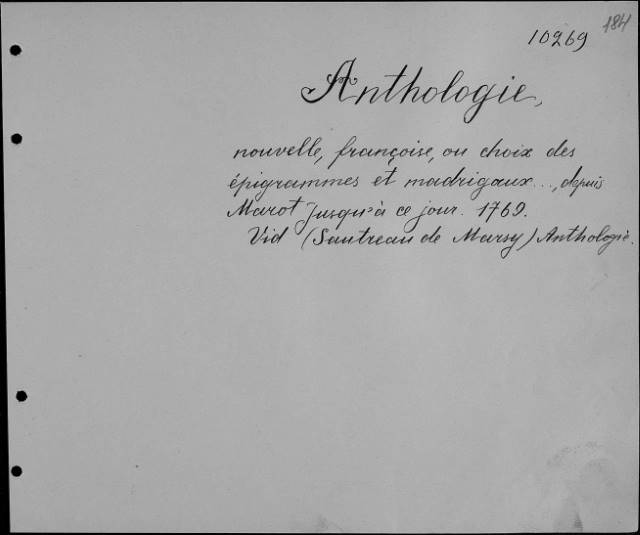 184
10269
Anthologie,
nouvelle, françoise, ou choix des
épigrammes et madrigaux..., depuis
Marot jusqu'à ce jour. 1769.
Vid (Sautreau de Marsy) Anthologie.